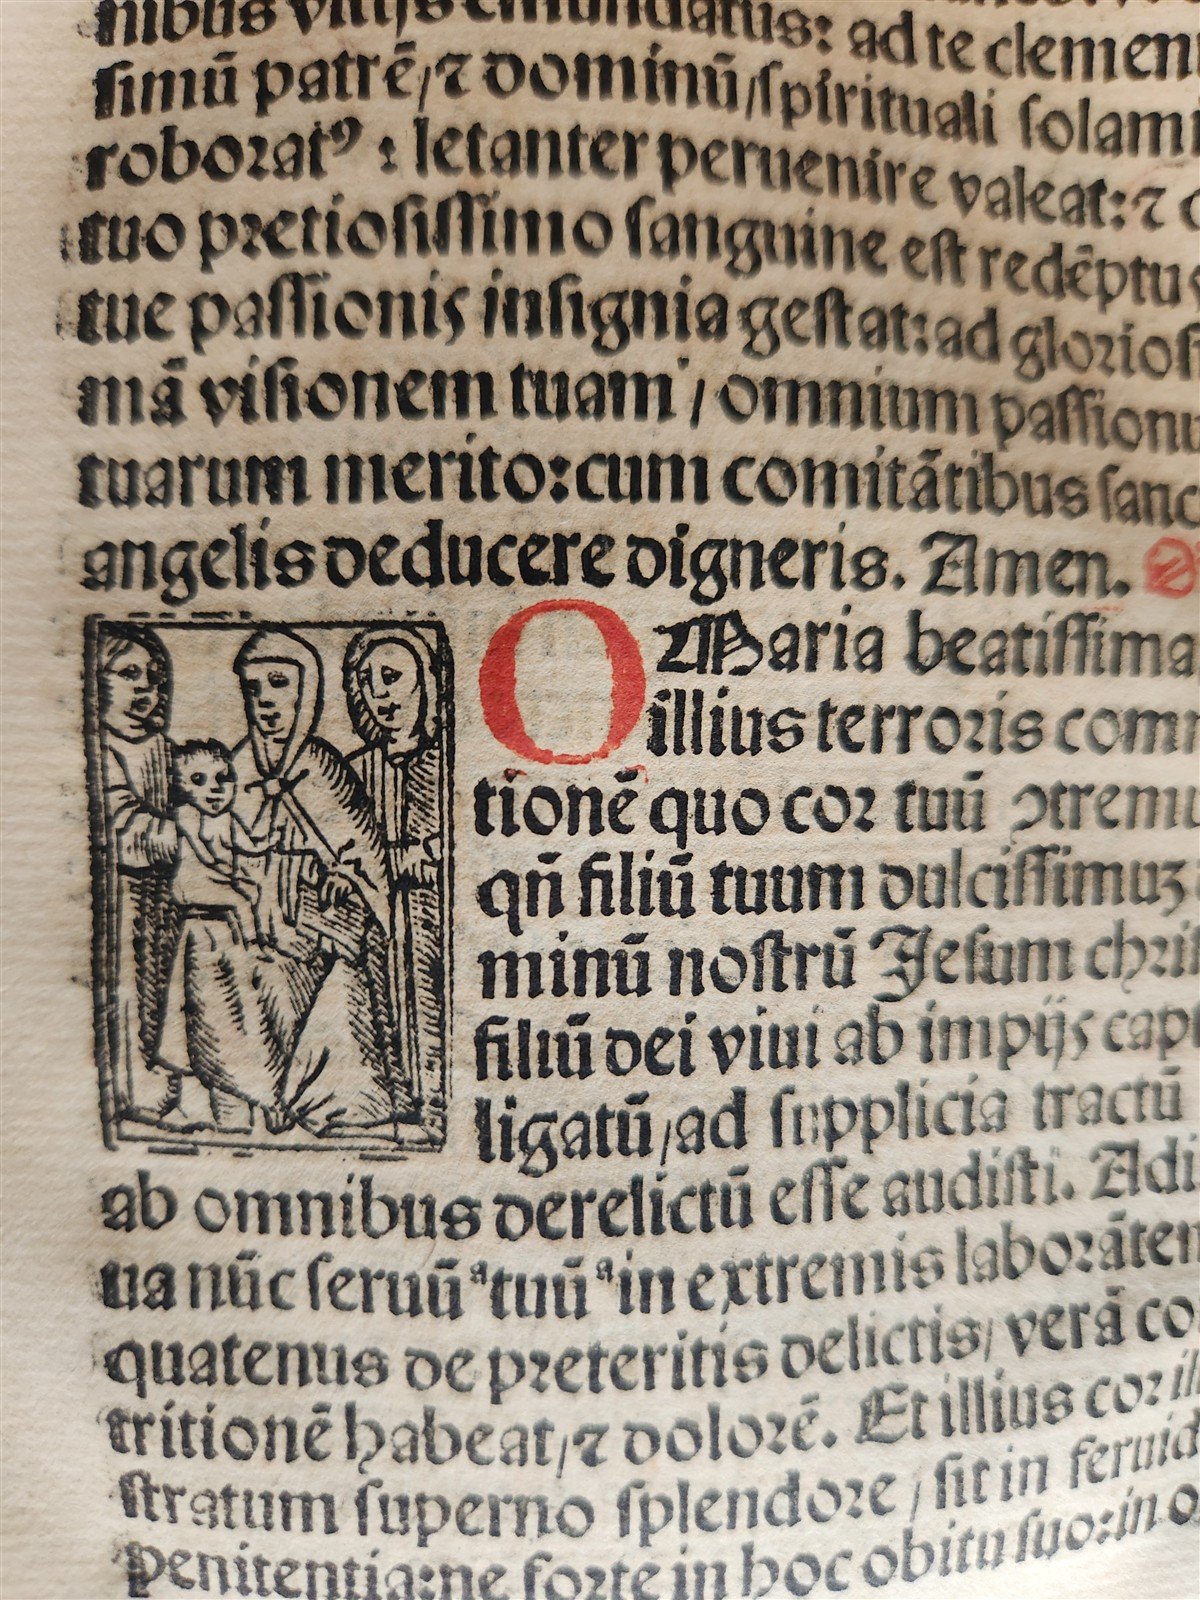 nibus vitijs emundatus: ad te clemen
simū patrē/⁊ dominū/spirituali solam
roboratꝰ : letanter peruenire valeat:⁊
tuo pretiosissimo sanguine est redēptu
tue passionis insignia gestat:ad gloriosi
mā visionem tuam / omnium passionu
tuarum merito:cum comitātibus sanc
angelis deducere digneris. Amen.
O Maria beatissima
illius terroris com
tionē quo cor tuū ꝯtremu
qn̄ filiū tuum dulcissimuꝫ
minū nostrū Jesum chri
filiū dei viui ab impijs cap
ligatū/ad supplicia tractū
ab omnibus derelictū esse audisti. Adi
ua nūc seruū ᵃtuū ᵃin extremis laborāten
quatenus de preteritis delictis/ verā co
tritionē habeat/⁊ dolorē. Et illius cor ill
stratum superno splendore / sit in feruid
penitentia:ne forte in hoc obitu suo:in o